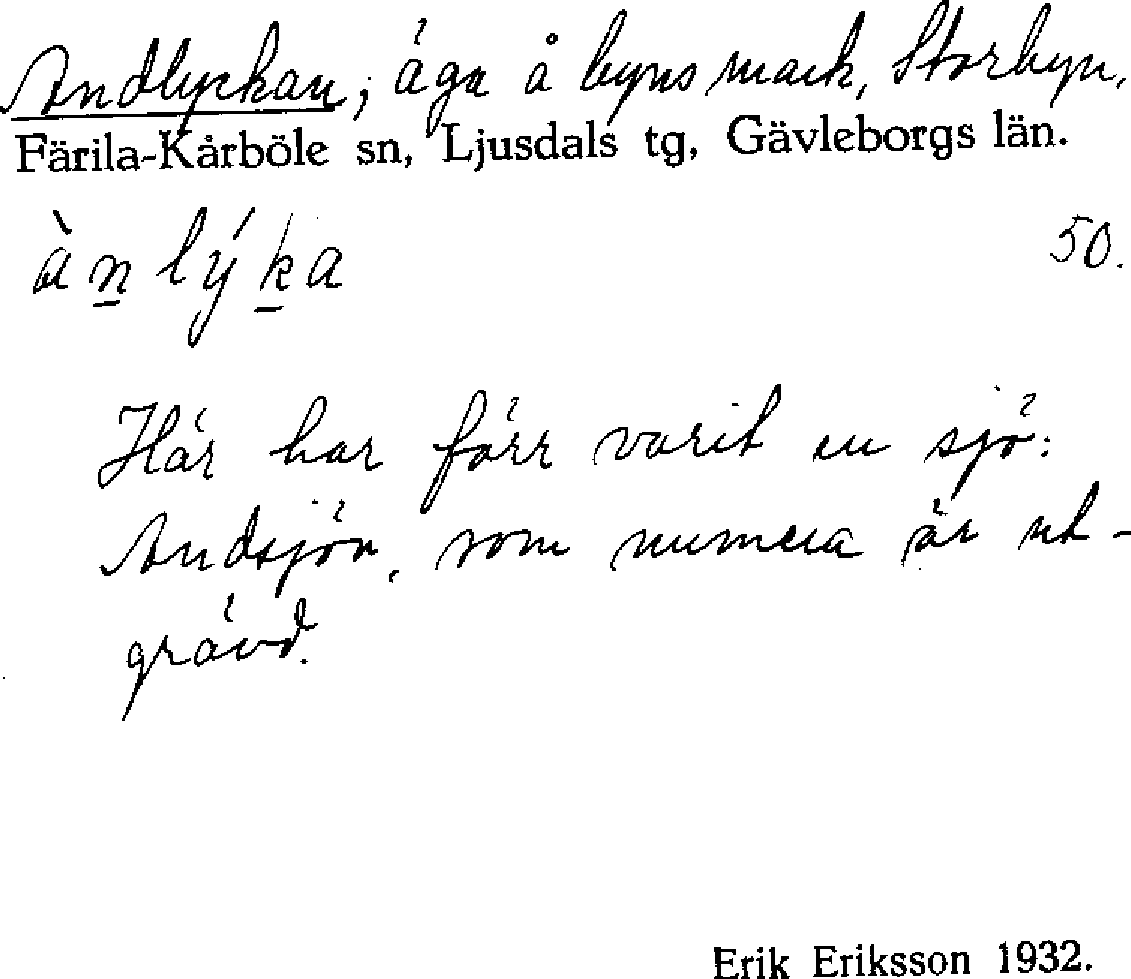 Andlyckan; äga å byns mark, Storbyn,
Färila-Kårböle sn, Ljusdals tg, Gävleborgs län.
àn̲lýk̲a 50.
Här har förr varit en sjö:
Andsjön, som numera är ut-
grävd.
Erik Eriksson 1932.